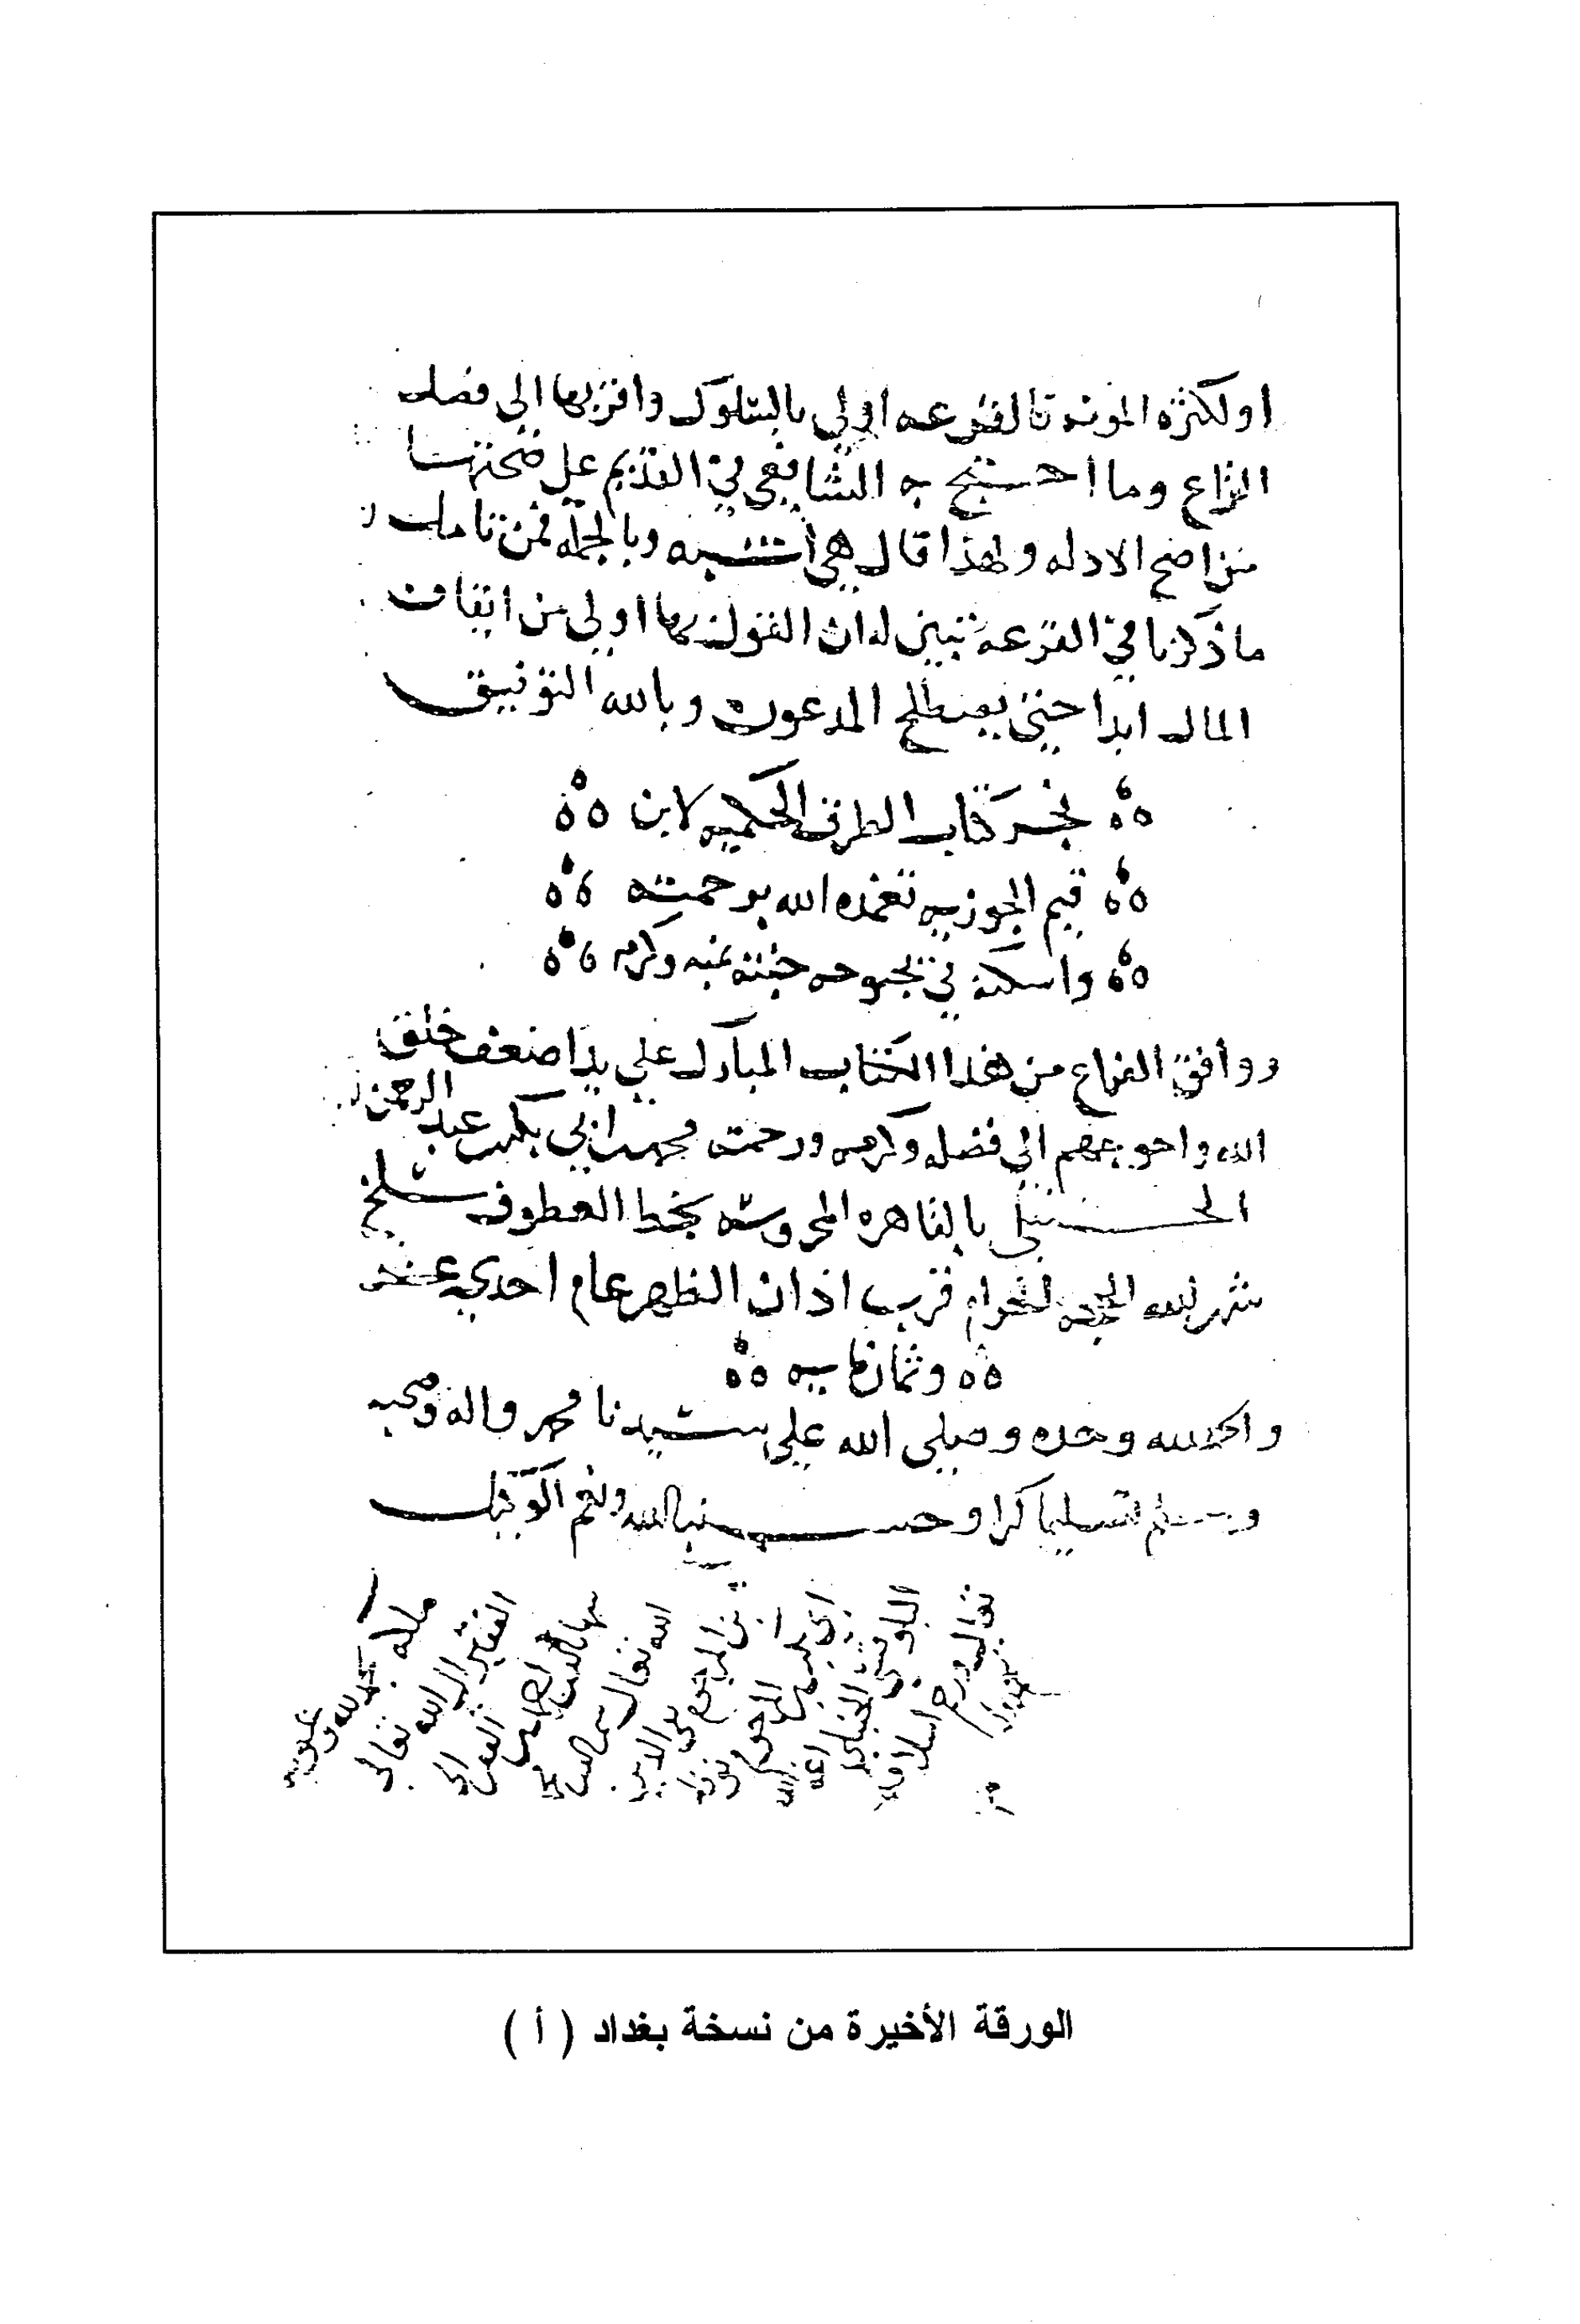 او لكثره المونه فالقرعه اولى بالسلوك واقربها الى فصل
النزاع وما احتج به الشافعي في القديم على صحتها
من اضح الادله ولهذا قال هي اشبه وبالجمله فمن تامل
ما ذكرنا في القرعه تبين له ان القول بها اولى من ايقاف
المال ابدا حتى يصطلح المدعون وبالله التوفيق
نجز كتاب الطرق الحكميه لابن
قيم الجوزيه تغمده الله برحمته
واسكنه في بحبوحه جنته بمنه وكرمه
ووافق الفراغ من هذا الكتاب المبارك على يد اضعف خلق
الله واحوجهم الى فضله وكرمه ورحمته محمد بن ابي بكر بن عبد الرحمن
الحنبلي بالقاهره المحروسه بخط العطوف سلخ
شهر الله الحجه الحرام قرب اذان الظهر عام احدى عشر
وثمان مايه
والحمد لله وحده وصلى الله على سيدنا محمد واله وصحبه
وسلم تسليما كثيرا وحسبنا الله ونعم الوكيل
ملكه بحمد الله وعونه
الفقير الى الله تعالى
الله تعالى
الورقة الأخيرة من نسخة بغداد ( أ )